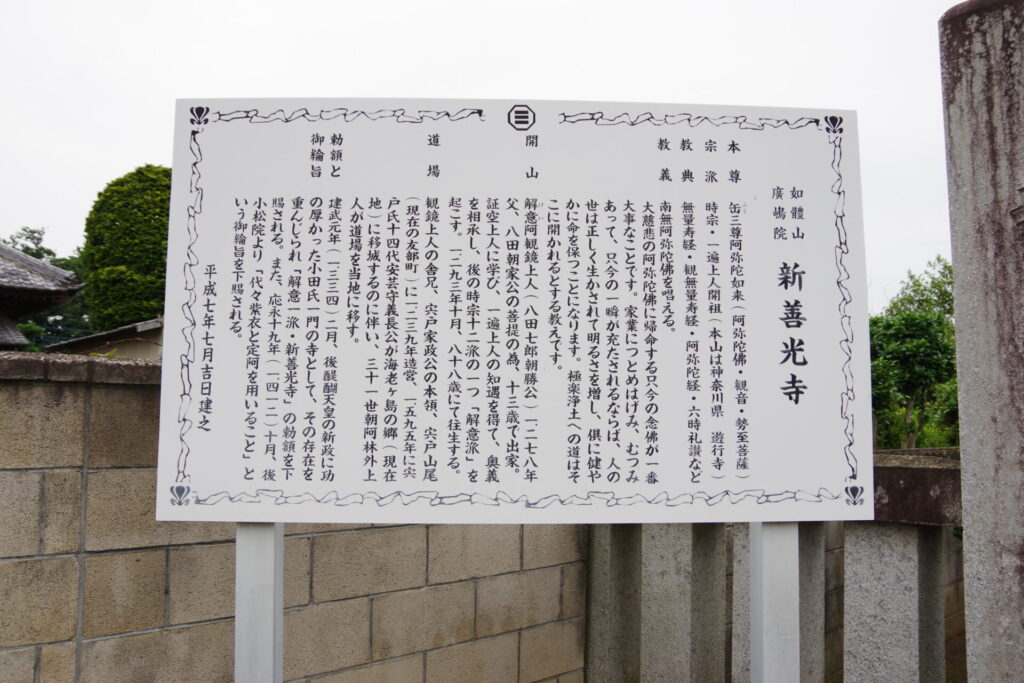 如體山
廣嶋院
新善光寺
本尊
缶三尊阿弥陀如来（阿弥陀佛・観音・勢至菩薩）
宗派
時宗・一遍上人開祖（本山は神奈川県 遊行寺）
教典
無量寿経・観無量寿経・阿弥陀経・六時礼讃など
教義
南無阿弥陀佛を唱える。
大慈悲の阿弥陀佛に帰命する只今の念佛が一番
大事なことです。家業につとめはげみ、むつみ
あって、只今の一瞬が充たされるならば、人の
世は正しく生かされて明るさを増し、倶に健や
かに命を保つことになります。極楽浄土への道はそ
こに開かれるとする教えです。
開山
解意阿観鏡上人（八田七郎朝勝公）一二七八年
父、八田朝家公の菩提の為、十三歳で出家。
証空上人に学び、一遍上人の知遇を得て、奥義
を相承し、後の時宗十二派の一つ「解意派」を
起こす。一二九三年十月、八十八歳にて往生する。
道場
観鏡上人の舎兄、宍戸家政公の本領、宍戸山尾
（現在の友部町）に一二三九年造営、一五九五年に宍
戸氏十四代安芸守義長公が海老ヶ島の郷（現在
地）に移城するのに伴い、三十一世朝阿林外上
人が道場を当地に移す。
勅額と
御綸旨
建武元年（一三三四）二月、後醍醐天皇の新政に功
の厚かった小田氏一門の寺として、その存在を
重んじられ「解意一派・新善光寺」の勅額を下
賜される。また、応永十九年（一四一二）十月、後
小松院より「代々紫衣と定阿を用いること」と
いう御綸旨を下賜される。
平成七年七月吉日建之